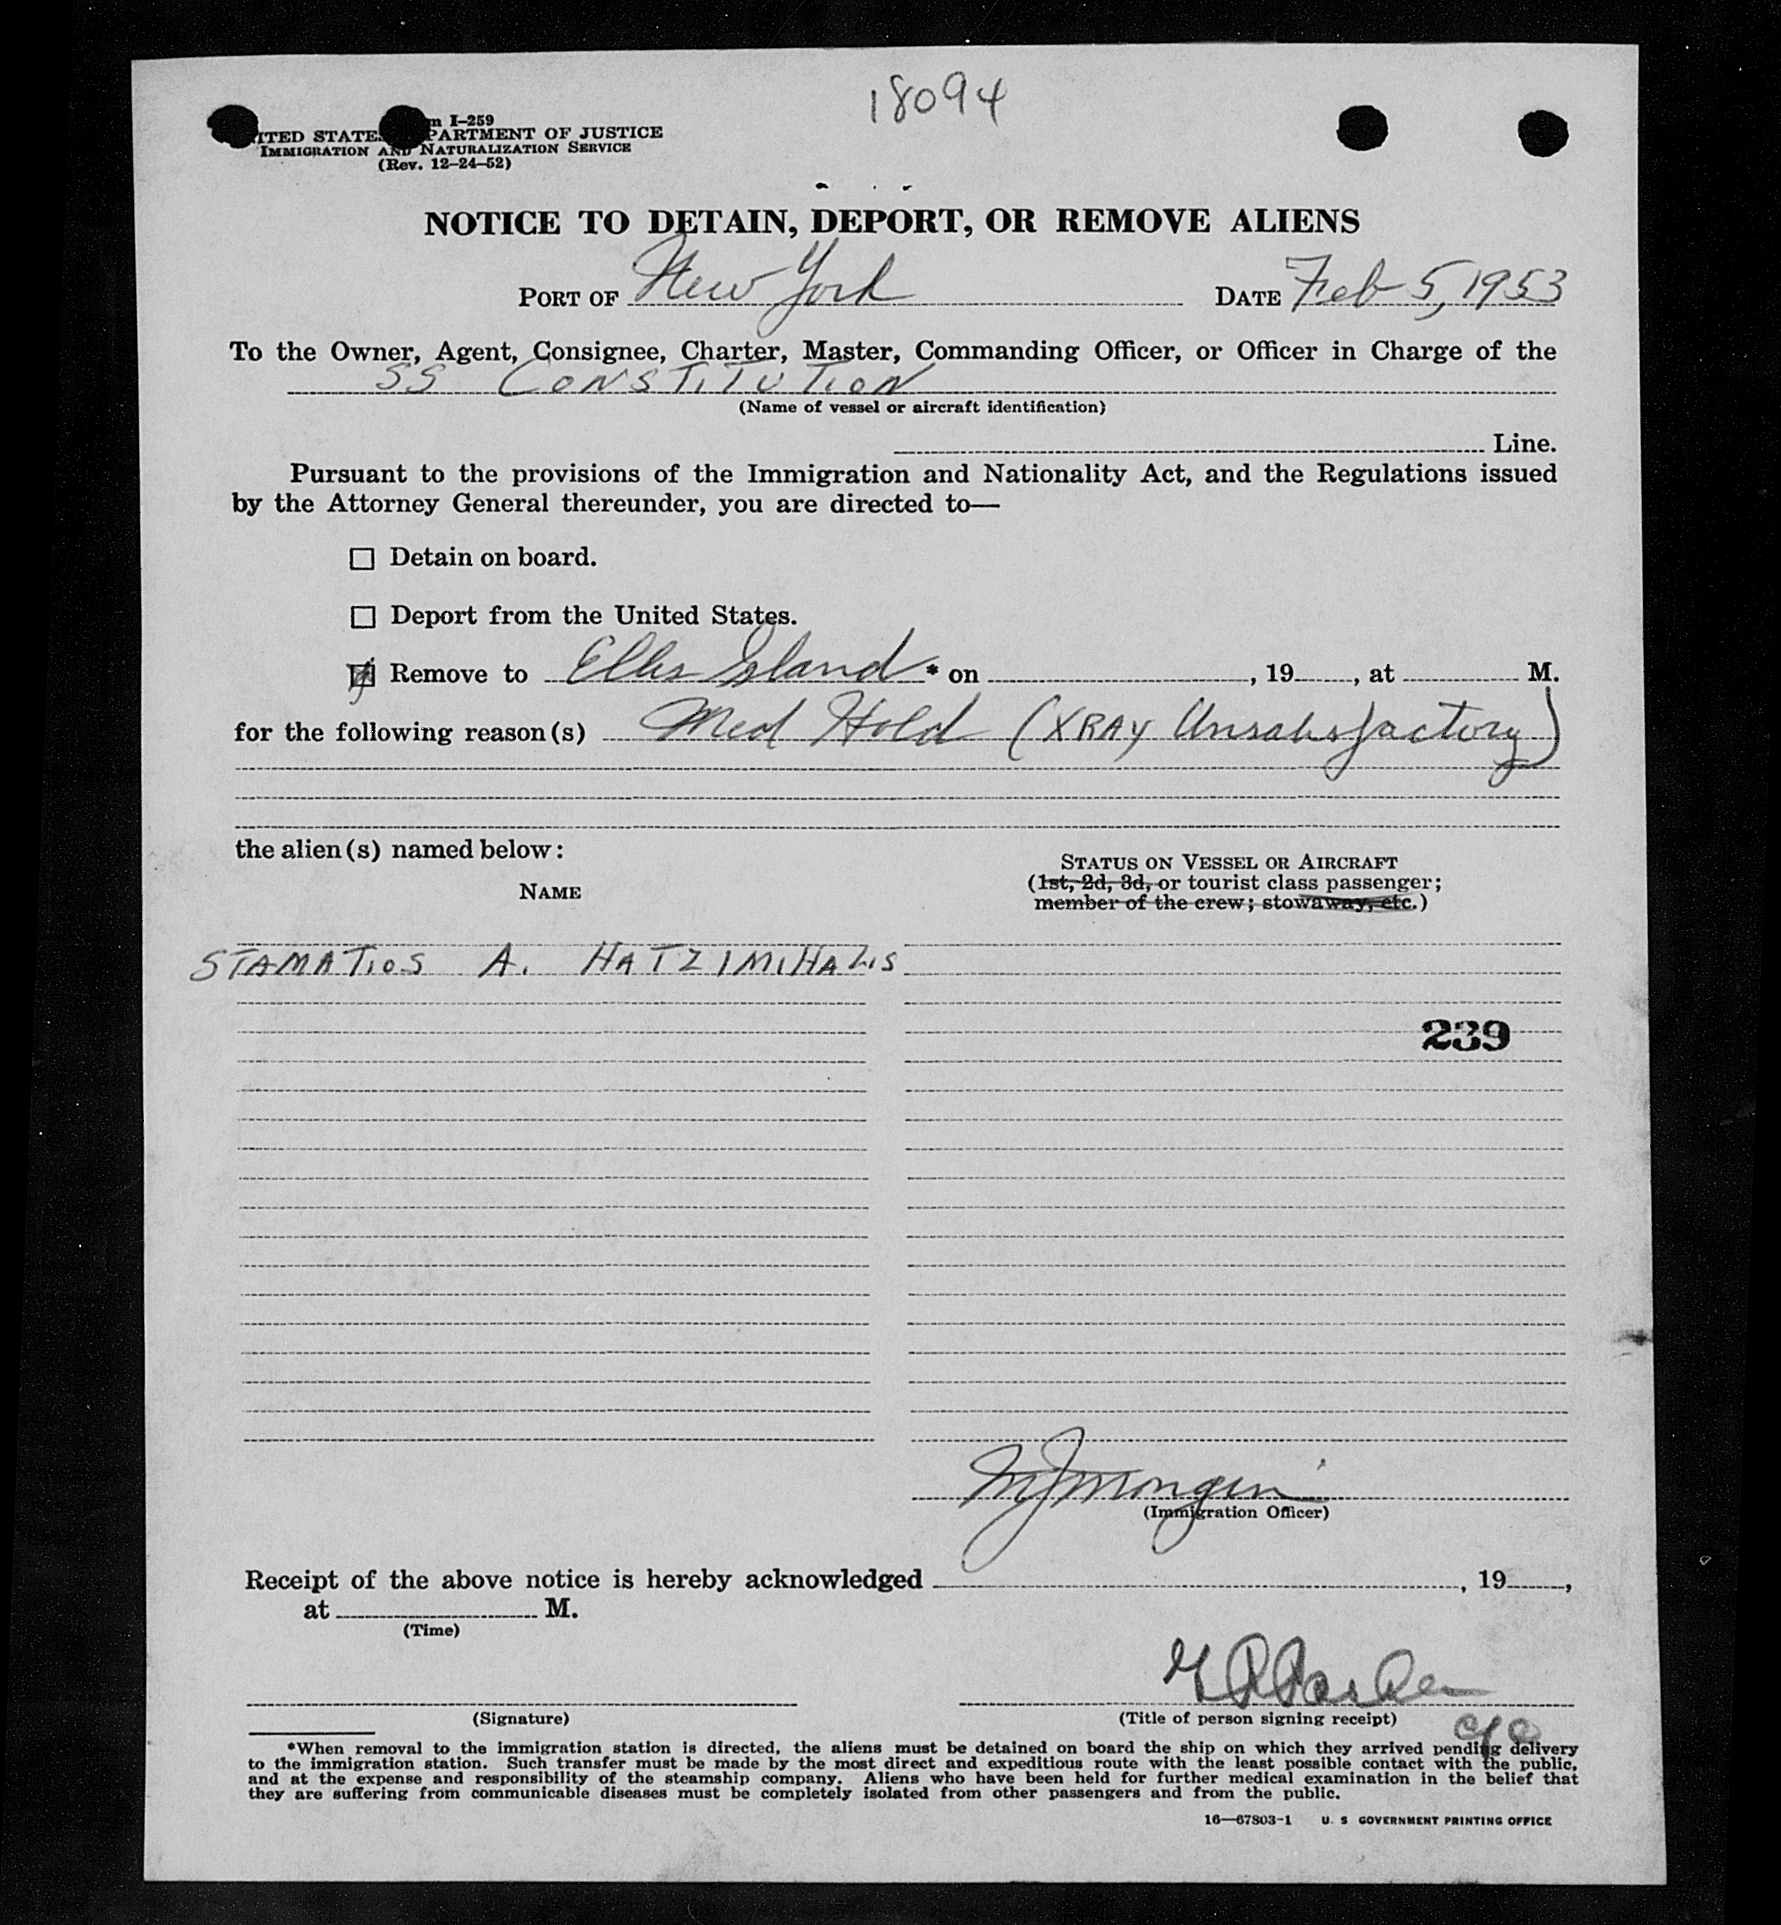 18094
m I-259
ITED STATE PARTMENT OF JUSTICE
IMMIGRATION AND NATURALIZATION SERVICE
(Rev. 12-24-52)
NOTICE TO DETAIN, DEPORT, OR REMOVE ALIENS
PORT OF New York DATE Feb 5, 1953
To the Owner, Agent, Consignee, Charter, Master, Commanding Officer, or Officer in Charge of the
SS CONSTITUTION
(Name of vessel or aircraft identification)
Line.
Pursuant to the provisions of the Immigration and Nationality Act, and the Regulations issued
by the Attorney General thereunder, you are directed to—
Detain on board.
Deport from the United States.
Remove to Ellis Island * on , 19 , at M.
for the following reason(s) Med Hold (XRAY Unsatisfactory)
the alien(s) named below:
STATUS ON VESSEL OR AIRCRAFT
NAME (1st, 2d, 3d, or tourist class passenger;
member of the crew; stowaway, etc.)
STAMATIOS A. HATZIMIHALIS
239
(Immigration Officer)
Receipt of the above notice is hereby acknowledged , 19 ,
at M.
(Time)
(Signature) (Title of person signing receipt)
*When removal to the immigration station is directed, the aliens must be detained on board the ship on which they arrived pending delivery
to the immigration station. Such transfer must be made by the most direct and expeditious route with the least possible contact with the public,
and at the expense and responsibility of the steamship company. Aliens who have been held for further medical examination in the belief that
they are suffering from communicable diseases must be completely isolated from other passengers and from the public.
16—67803-1 U. S GOVERNMENT PRINTING OFFICE